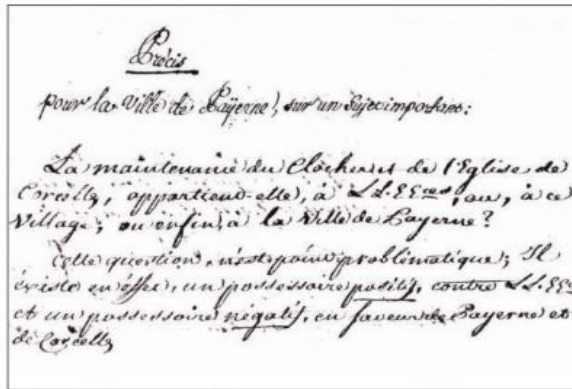 Précis
pour la Ville de Païerne, sur un Sujet important:
La maintenance du Clocher et de l'Eglise de
Corcelles, appartient-elle, à LL.EEces, ou, à ce
Village; ou enfin, à la Ville de Payerne?
Cette question, n'est point problématique; Il
éxiste en éffet, un possessoire positif, contre LL.EEces
et un possessoire négatif, en faveur de Payerne et
de Corcelles